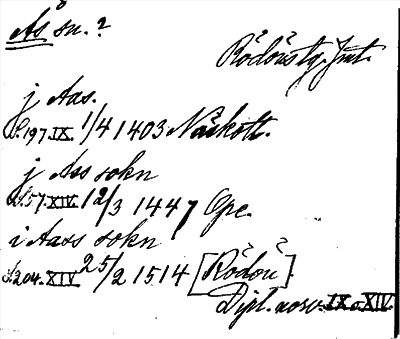 Ås sn.?
Rödöns tg. Jmt.
j Aas.
S. 197 IX. 1/4 1403 Näskott.
j Ass sokn
S. 57 XIV. 12/3 1447 Ope.
i Aass sokn
S. 204. XIV 25/2 1514 [Rödön].
Dipl. norv. IX o. XIV.